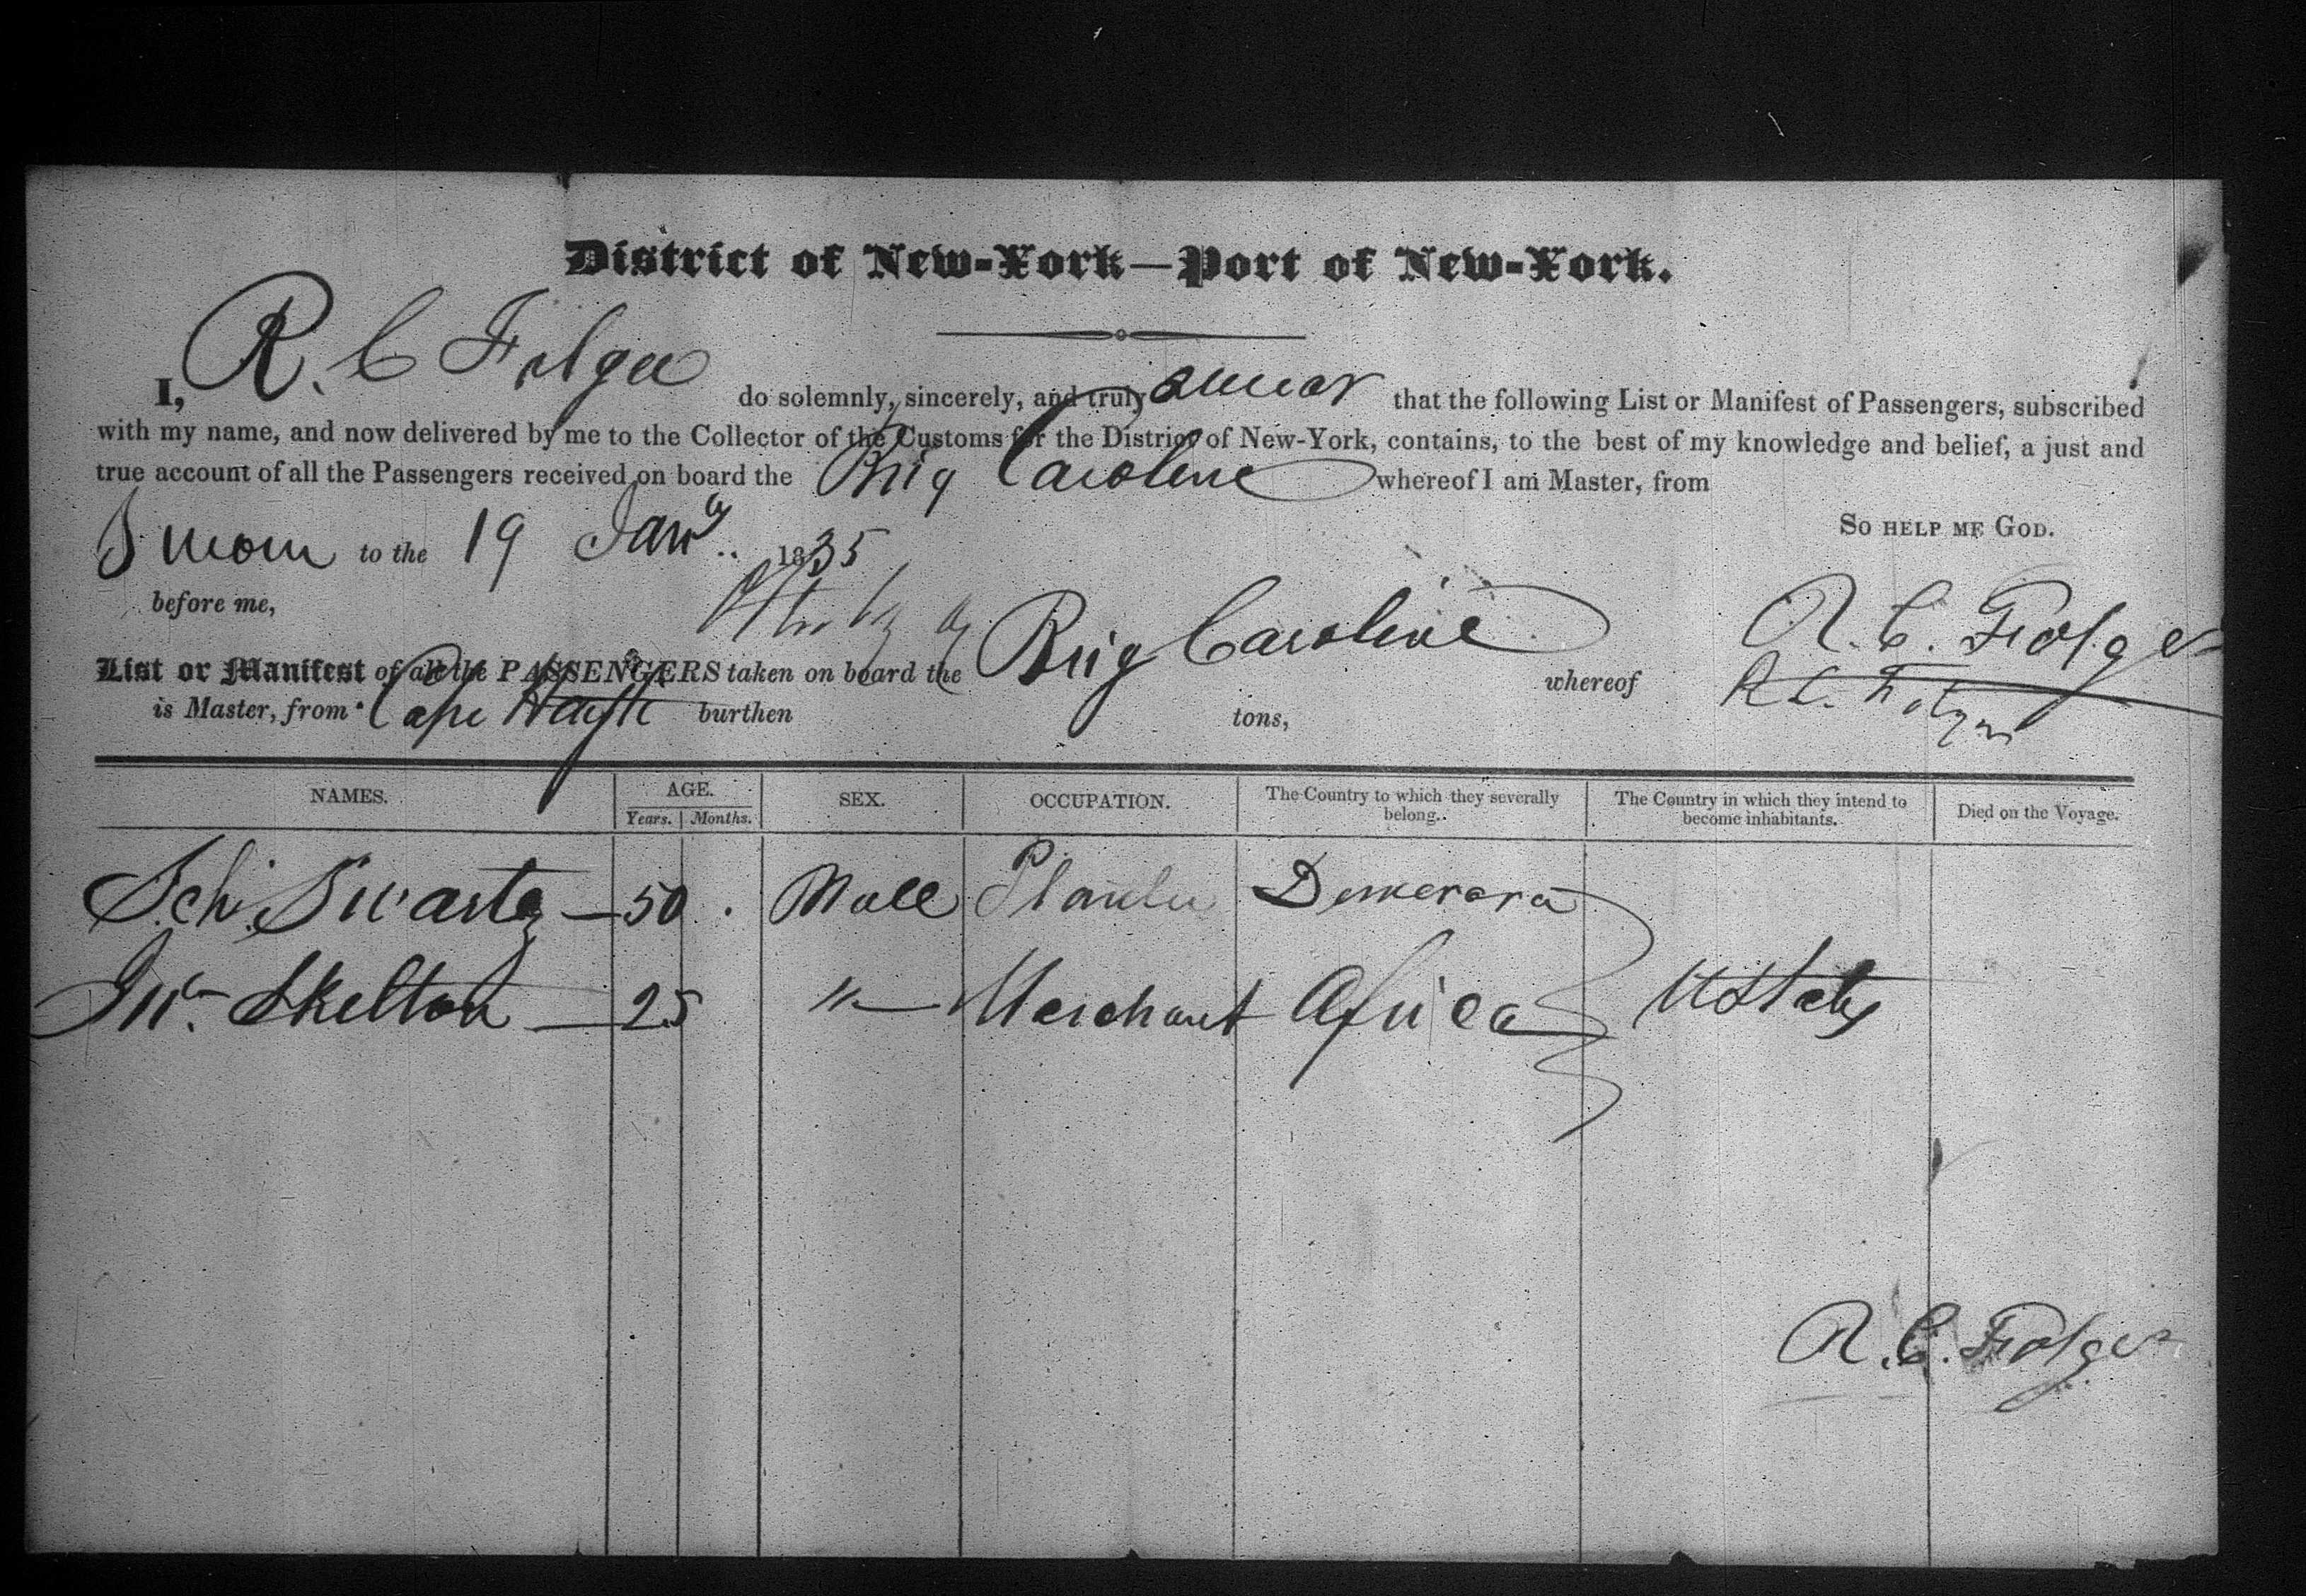 District of New-York—Port of New-York.
I, R. C Folger do solemnly, sincerely, and truly swear that the following List or Manifest of Passengers, subscribed
with my name, and now delivered by me to the Collector of the Customs for the District of New-York, contains, to the best of my knowledge and belief, a just and
true account of all the Passengers received on board the Brig Caroline whereof I am Master, from
Sworn to the 19 Jany.. 1835 So help me God.
before me, R. C. Folger
List or Manifest of all the PASSENGERS taken on board the Brig Caroline whereof R C. Folger
is Master, from Cape burthen tons,
NAMES. AGE. SEX. OCCUPATION. The Country to which they severally belong. The Country in which they intend to become inhabitants. Died on the Voyage.
Years. Months.
Sch. Swartz — 50 Male Planter Demerara
Jno. Skelton — 25 " Merchant Africa U States
R. C. Folger